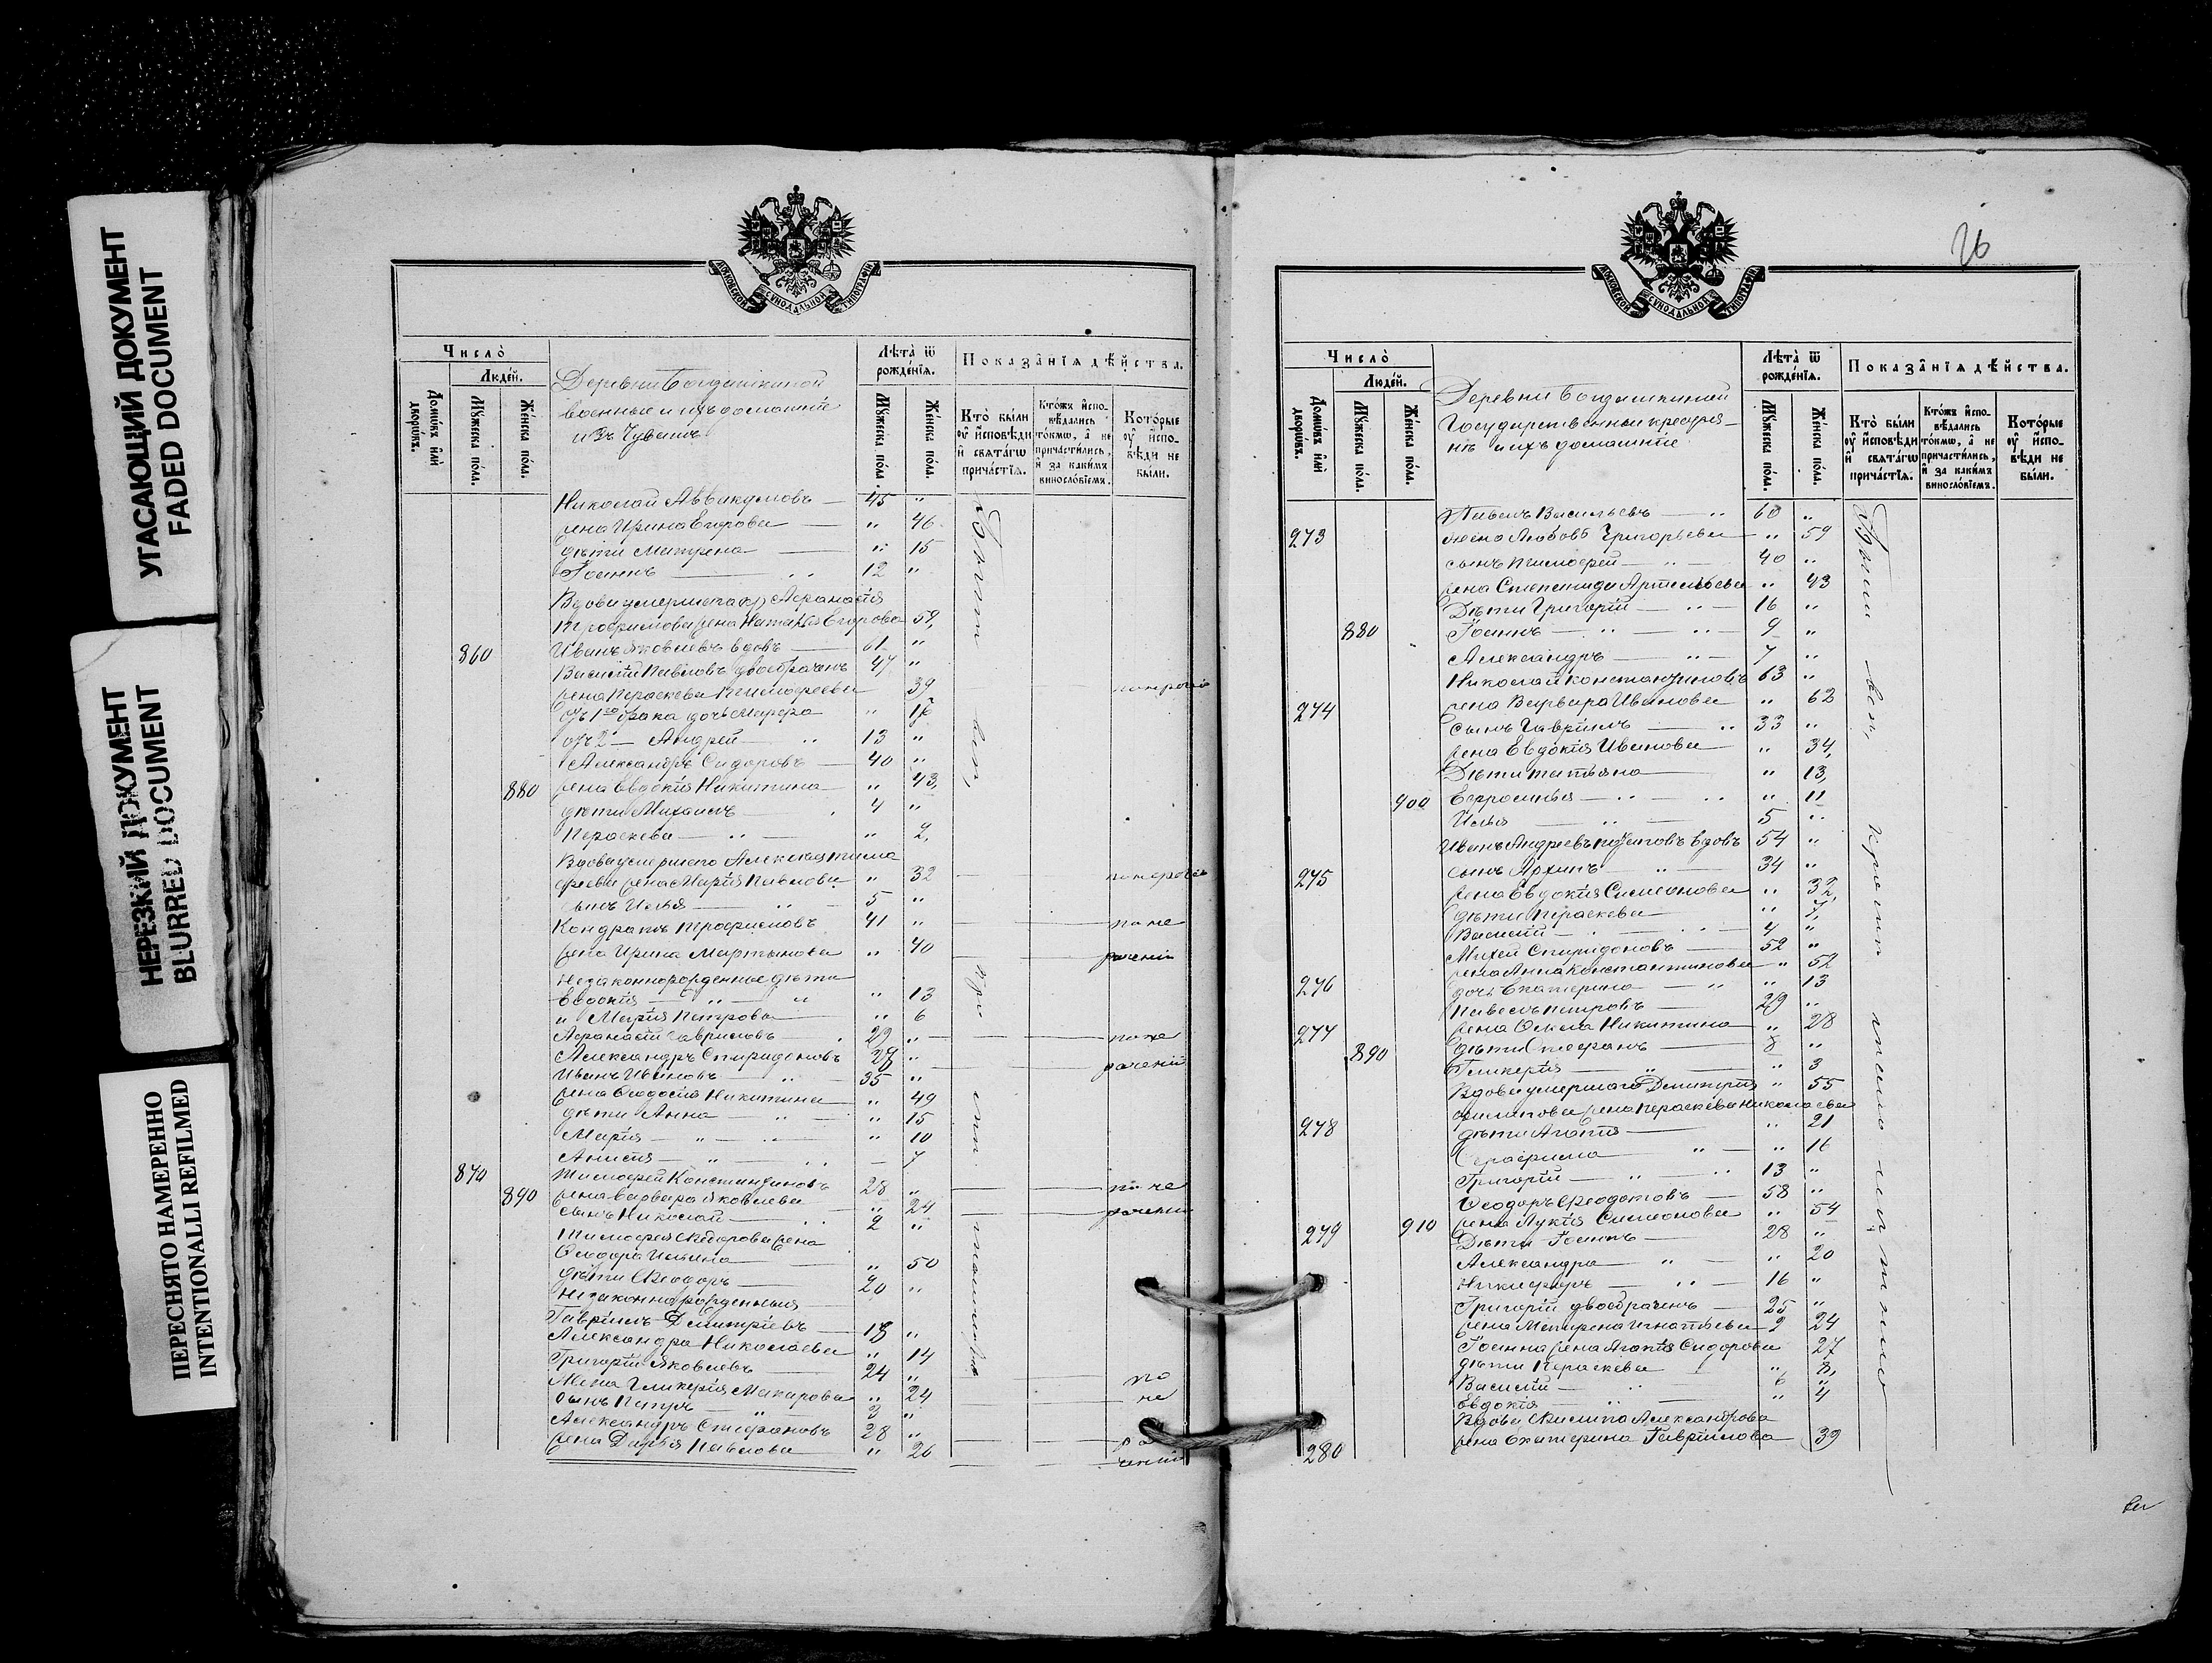 УГАСАЮЩИЙ ДОКУМЕНТ
FADED DOCUMENT
НЕРЕЗКИЙ ДОКУМЕНТ
BLURRED DOCUMENT
ПЕРЕСНЯТО НАМЕРЕННО
INTENTIONALLI REFILMED
МОСКОВСКОЙ СѴНОДАЛЬНОЙ ТИПОГРАФІИ
Число̀
Людей.
Домѡвъ илѝ дворѡвъ.
Мꙋжеска пола.
Женска пола.
Деревни Богдашкиной
военные и ихъ домашніе
изъ Чувашъ
Лѣта̀ ѿ рожденїѧ.
Мꙋжеска пола.
Женска пола.
Показанїѧ дѣйства.
Кто̀ были ᲂу҆ исповѣди и свѧтагѡ причастїѧ.
Ктожъ исповѣдались токмѡ, а не причастились, и за какимъ винословїемъ.
Которые ᲂу҆ исповѣди не были.
Николай Аввакумовъ — 45 "
жена Ирина Егорова — " 46
дѣти Матрена — " 15
Іоаннъ — 12 "
Вдова умершаго Афанасія
Трофимова жена Наталія Егорова 59
860 Иванъ Яковлевъ вдовъ — 61 "
Василій Павловъ двоебраченъ 47 "
жена Параскева Тимофеева 39
отъ 1го брака дочь Марфа " 17
отъ 2 — Андрей 13 "
Александръ Сидоровъ — 40 "
880 жена Евдокія Никитина — " 43
дѣти Михаилъ 4 "
Параскева — " 2
Вдова умершаго Алексія Тимо
феева жена Марія Павлова " 32
сынъ Илья 5 "
Кондратъ Трофимовъ 41 " по не
жена Ирина Мартынова " 40 раченію
Незаконнорожденные дѣти
Евдокія — " 13
" Марія Петрова " 6
Афанасій Гавриловъ 29 " по не
Александръ Спиридоновъ 29 " раченію
Иванъ Ивановъ — 35 "
жена Ѳеодосія Никитина " 49
дѣти Анна — " 15
Марія — " 10
Анисія — 7
870 Тимофей Константиновъ 28 " по не
890 жена Варвара Яковлева " 24 раченію
сынъ Николай 2 "
Тимофея Ѳедорова жена
Ѳеодора Ильина " 50
дѣти Ѳеодоръ 20 "
Незаконнорожденныя
Гавріилъ Димитріевъ 18 "
Александра Николаева " 14
Григорій Яковлевъ 24 " по
жена Гликерія Макарова " 24 не
сынъ Петръ 2 "
Александръ Стефановъ 28 " ра
жена Дарья Павлова " 26 ченію
26
МОСКОВСКОЙ СѴНОДАЛЬНОЙ ТИПОГРАФІИ
Число̀
Людей.
Домѡвъ илѝ дворѡвъ.
Мꙋжеска пола.
Женска пола.
Деревни Богдашкиной
Государственные крестья-
не и ихъ домашніе
Лѣта̀ ѿ рожденїѧ.
Мꙋжеска пола.
Женска пола.
Показанїѧ дѣйства.
Кто̀ были ᲂу҆ исповѣди и свѧтагѡ причастїѧ.
Ктожъ исповѣдались токмѡ, а не причастились, и за какимъ винословїемъ.
Которые ᲂу҆ исповѣди не были.
Павелъ Васильевъ — 60 "
273 жена Любовь Григорьева — " 59
сынъ Тимофей — 40 "
жена Степанида Артемьева " 43
Дѣти Григорій — 16 "
880 Іоаннъ — 9 "
Александръ — 7 "
Николай Константиновъ 63 "
274 жена Варвара Иванова " 62
сынъ Гавріилъ 33 "
жена Евдокія Иванова " 34
Дѣти Татьяна " 13
900 Евфросинья — " 11
Илья — 5 "
Иванъ Андреевъ вдовъ 54 "
275 сынъ Архипъ 34 "
жена Евдокія Симеонова " 32
дѣти Параскева " 7
Василій — 4 "
Михей Спиридоновъ — 52 "
жена Анна Константинова " 52
276 дочь Екатерина — " 13
Павелъ Петровъ — 29 "
277 жена Олена Никитина " 28
890 дѣти Стефанъ — 8 "
Гликерія — " 3
Вдова умершаго Димитрія " 55
Филипова жена Параскева Николаева
278 дѣти Агафія — " 21
Серафима " 16
Григорій — 13 "
Ѳеодоръ Ѳеодотовъ — 58 "
жена Лукія Симеонова " 54
279 910 Дѣти Іоаннъ — 28 "
Александра " 20
Никифоръ — 16 "
Григорій двоебраченъ — 25 "
жена Матрена Игнатьева 2 24
Іоанна жена Агафія Сидорова 27
дѣти Параскева " 8
Василій — 6 "
Евдокія " 4
Вдова Филипа Александрова
280 жена Екатерина Гаврилова 39